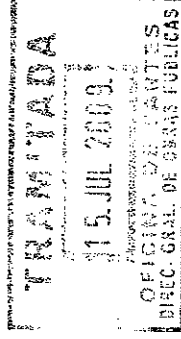 TRAMITADA
15. JUL. 2009.
OFICINA DE PARTES
DIREC. GRAL. DE OBRAS PUBLICAS